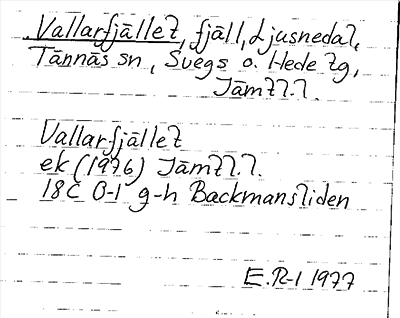 Vallarfjället, fjäll, Ljusnedal,
Tännäs sn, Svegs o. Hede tg,
Jämtl.l.
Vallarfjället
ek (1976) Jämtl.l.
18C 0-1 g-h Backmansliden
E.R-l 1977